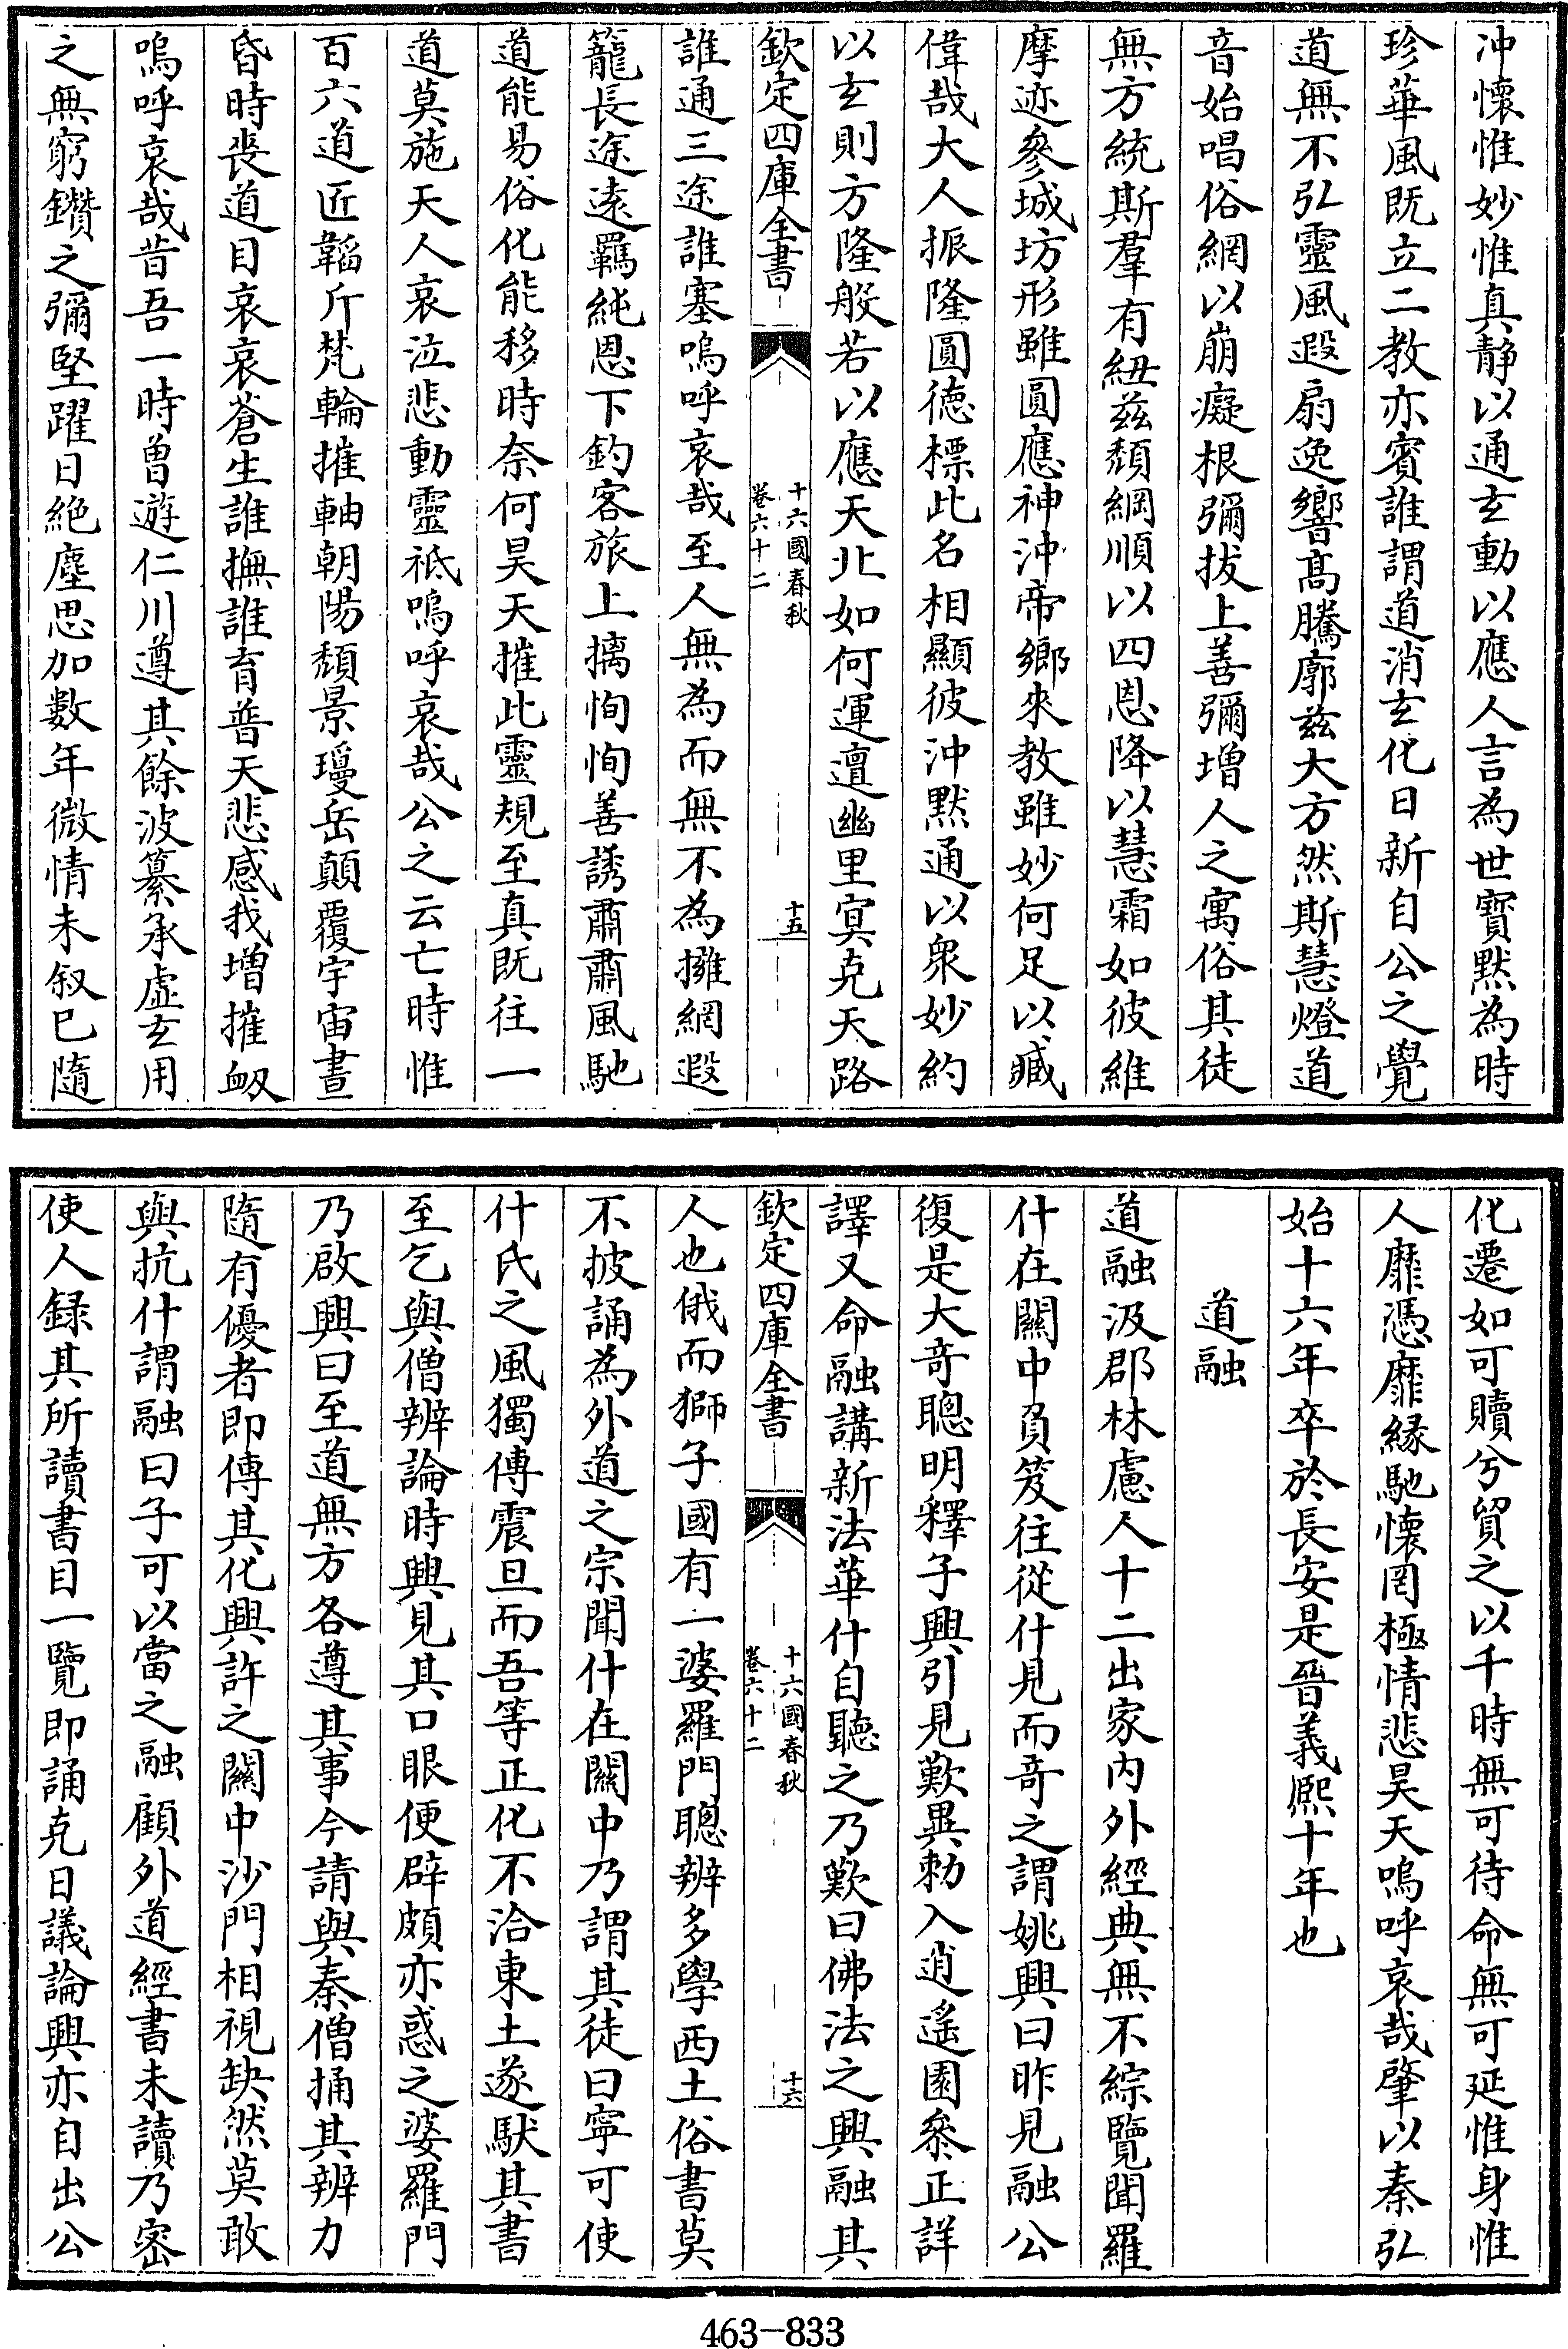 沖懷惟妙惟真静以通玄動以應人言為世寶黙為時
珍華風既立二教亦賓誰謂道消玄化日新自公之覺
道無不弘靈風遐扇逸響髙騰廓兹大方然斯慧燈道
音始唱俗網以崩癡根彌拔上善彌增人之寓俗其徒
無方統斯羣有紐兹頽綱順以四恩降以慧霜如彼維
摩迹參城坊形雖圓應神沖帝鄉來教雖妙何足以臧
偉哉大人振隆圓徳標此名相顯彼沖黙通以衆妙約
以玄則方隆般若以應天北如何運邅幽里㝠克天路
欽定四庫全書
十六國春秋
卷六十二
十五
誰通三途誰塞嗚呼哀哉至人無為而無不為擁網遐
籠長途逺羈純恩下釣客旅上摛恂恂善誘肅肅風馳
道能易俗化能移時奈何昊天摧此靈規至真既往一
道莫施天人哀泣悲動靈祇嗚呼哀哉公之云亡時惟
百六道匠韜斤梵輪摧軸朝陽頽景瓊岳顛覆宇宙晝
昏時喪道目哀哀蒼生誰撫誰育普天悲感我增摧衂
嗚呼哀哉昔吾一時曽遊仁川遵其餘波纂承虚玄用
之無窮鑽之彌堅躍日絶塵思加數年微情未叙已隨
化遷如可贖兮貿之以千時無可待命無可延惟身惟
人靡憑靡縁馳懷罔極情悲昊天嗚呼哀哉肇以秦弘
始十六年卒於長安是晉義熈十年也
道融
道融汲郡林慮人十二出家内外經典無不綜覽聞羅
什在闗中負笈往從什見而竒之謂姚興曰昨見融公
復是大竒聰明釋子興引見歎異勅入逍遙園叅正詳
譯又命融講新法華什自聽之乃歎曰佛法之興融其
欽定四庫全書
十六國春秋
卷六十二
十六
人也俄而獅子國有一婆羅門聰辨多學西土俗書莫
不披誦為外道之宗聞什在闗中乃謂其徒曰寧可使
什氏之風獨傳震旦而吾等正化不洽東土遂馱其書
至乞與僧辨論時興見其口眼便辟頗亦惑之婆羅門
乃啟興曰至道無方各遵其事今請與秦僧捅其辨力
隨有優者即傳其化興許之闗中沙門相視缺然莫敢
與抗什謂融曰子可以當之融顧外道經書未讀乃密
使人録其所讀書目一覽即誦克日議論興亦自出公
463-833